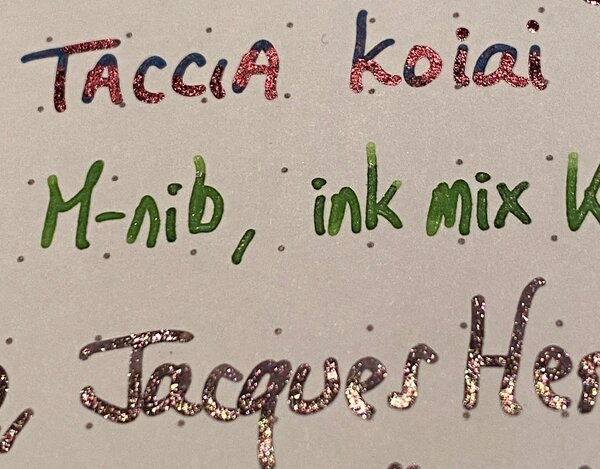 TACCIA koiai
M-nib, ink mix
Jacques